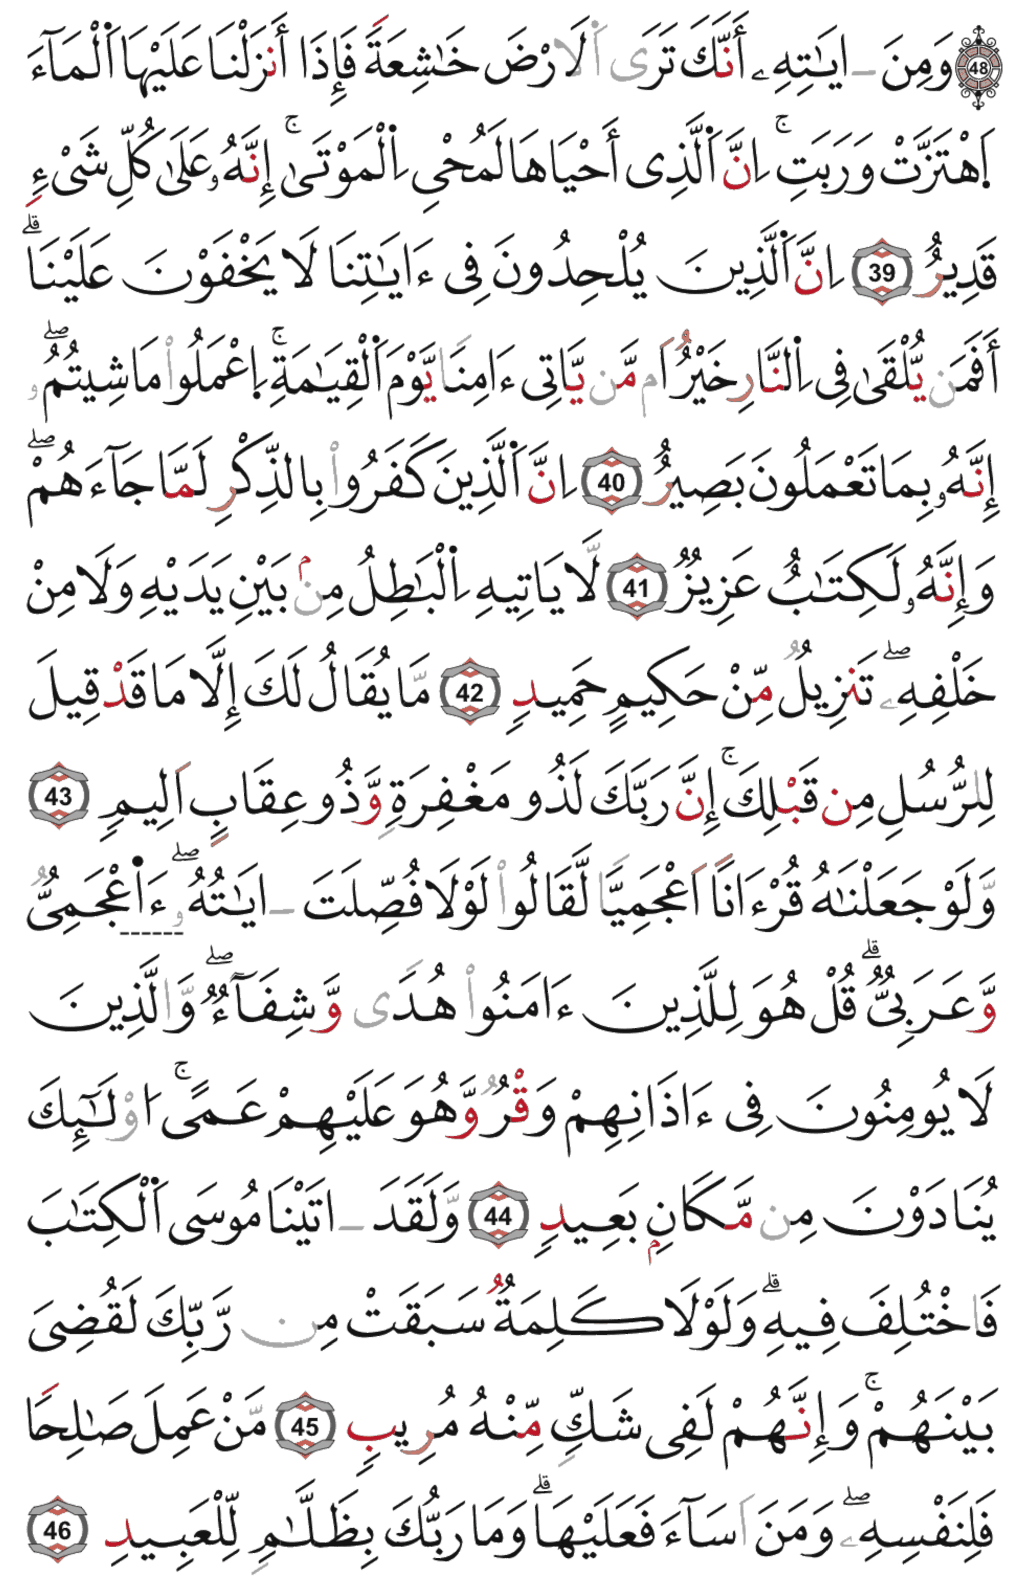 48 وَمِنَ ـ ايَٰتِهِۦ أَنَّكَ تَرَى اَ۬لَارْضَ خَٰشِعَةً فَإِذَا أَنزَلْنَا عَلَيْهَا اَ۬لْمَآءَ
اَ۪هْتَزَّتْ وَرَبَتِۖ اِنَّ اَ۬لَّذِى أَحْيَاهَا لَمُحْىِ اِ۬لْمَوْتَىٰۖ إِنَّهُۥ عَلَىٰ كُلِّ شَىْءٍ
قَدِيرٌ 39 اِنَّ اَ۬لَّذِينَ يُلْحِدُونَ فِى ءَايَٰتِنَا لَا يَخْفَوْنَ عَلَيْنَاۗ
أَفَمَن يُّلْقَىٰ فِى اِ۬لنَّارِ خَيْرٌ اَم مَّن يَّاتِى ءَامِنًا يَّوْمَ اَ۬لْقِيَٰمَةِۚ اِعْمَلُوا۟ مَا شِيتُمُۥٓۖ
إِنَّهُۥ بِمَا تَعْمَلُونَ بَصِيرٌ 40 اِنَّ اَ۬لَّذِينَ كَفَرُوا۟ بِالذِّكْرِ لَمَّا جَآءَهُمْۖ
وَإِنَّهُۥ لَكِتَٰبٌ عَزِيزٌ 41 لَّا يَاتِيهِ اِ۬لْبَٰطِلُ مِنۢ بَيْنِ يَدَيْهِ وَلَا مِنْ
خَلْفِهِۦۖ تَنزِيلٌ مِّنْ حَكِيمٍ حَمِيدٍ 42 مَّا يُقَالُ لَكَ إِلَّا مَا قَدْ قِيلَ
لِلرُّسُلِ مِن قَبْلِكَۚ إِنَّ رَبَّكَ لَذُو مَغْفِرَةٍ وَّذُو عِقَابٍ اَلِيمٍ 43
وَّلَوْ جَعَلْنَٰهُ قُرْءَانًا اَعْجَمِيًّا لَّقَالُوا۟ لَوْلَا فُصِّلَتَ ـ ايَٰتُهُۥۖ ءَا۬عْجَمِىٌّ
وَّعَرَبِىٌّۗ قُلْ هُوَ لِلَّذِينَ ءَامَنُوا۟ هُدًى وَّشِفَآءٌۖ وَّالَّذِينَ
لَا يُومِنُونَ فِى ءَاذَانِهِمْ وَقْرٌ وَّهُوَ عَلَيْهِمْ عَمًىۚ ا۟وْلَٰٓئِكَ
يُنَادَوْنَ مِن مَّكَانِۭ بَعِيدٍ 44 وَّلَقَدَ ـ اتَيْنَا مُوسَى اَ۬لْكِتَٰبَ
فَاخْتُلِفَ فِيهِۗ وَلَوْلَا كَلِمَةٌ سَبَقَتْ مِن رَّبِّكَ لَقُضِىَ
بَيْنَهُمْۚ وَإِنَّهُمْ لَفِى شَكٍّ مِّنْهُ مُرِيبٍ 45 مَّنْ عَمِلَ صَٰلِحًا
فَلِنَفْسِهِۦۖ وَمَنَ اَسَآءَ فَعَلَيْهَاۗ وَمَا رَبُّكَ بِظَلَّٰمٍ لِّلْعَبِيدِ 46